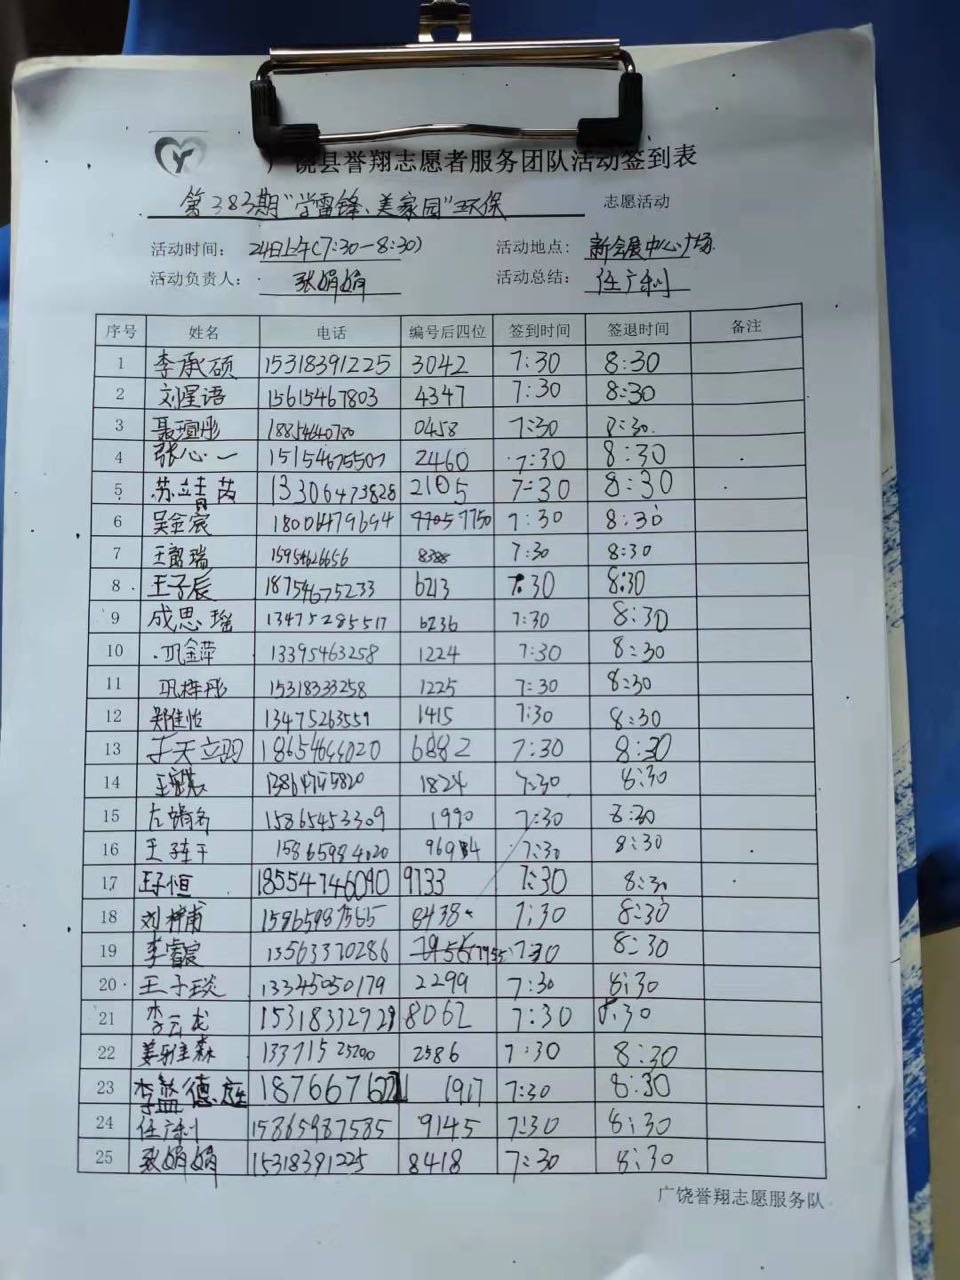 广饶县誉翔志愿者服务团队活动签到表
第383期"学雷锋、美家园"环保 志愿活动
活动时间： 24日上午(7:30-8:30) 活动地点： 新会展中心广场
活动负责人： 张娟娟 活动总结： 任广利
序号 姓名 电话 编号后四位 签到时间 签退时间 备注
1 李承硕 15318391225 3042 7:30 8:30
2 刘星语 15615467803 4347 7:30 8:30
3 聂瑄彤 18854640780 0458 7:30 8:30
4 张心一 15154675507 2460 7:30 8:30
5 苏立青茵 13306473828 2105 7:30 8:30
6 吴金宸 7750 7:30 8:30
7 王 瑞 15954626656 8388 7:30 8:30
8 王子辰 18754675233 6213 7:30 8:30
9 成思瑶 13475285517 6236 7:30 8:30
10 巩金萍 13395463258 1224 7:30 8:30
11 巩梓彤 15318333258 1225 7:30 8:30
12 郑佳怡 13475263559 1415 7:30 8:30
13 于天立羽 18654644020 6882 7:30 8:30
14 王 1824 7:30 8:30
15 左 15865453309 1990 7:30 8:30
16 王 15865984020 7:30 8:30
17 王子恒 18554746090 9733 7:30 8:30
18 刘梓甫 15865987585 8438 7:30 8:30
19 李睿宸 13563370286 7:30 8:30
20 王子琰 13345050179 2299 7:30 8:30
21 李云龙 8062 7:30 8:30
22 姜雅圭森 13371525200 2586 7:30 8:30
23 李 德庭 1917 7:30 8:30
24 任广利 15865987585 9145 7:30 8:30
25 张娟娟 15318391225 8418 7:30 8:30
广饶誉翔志愿服务队